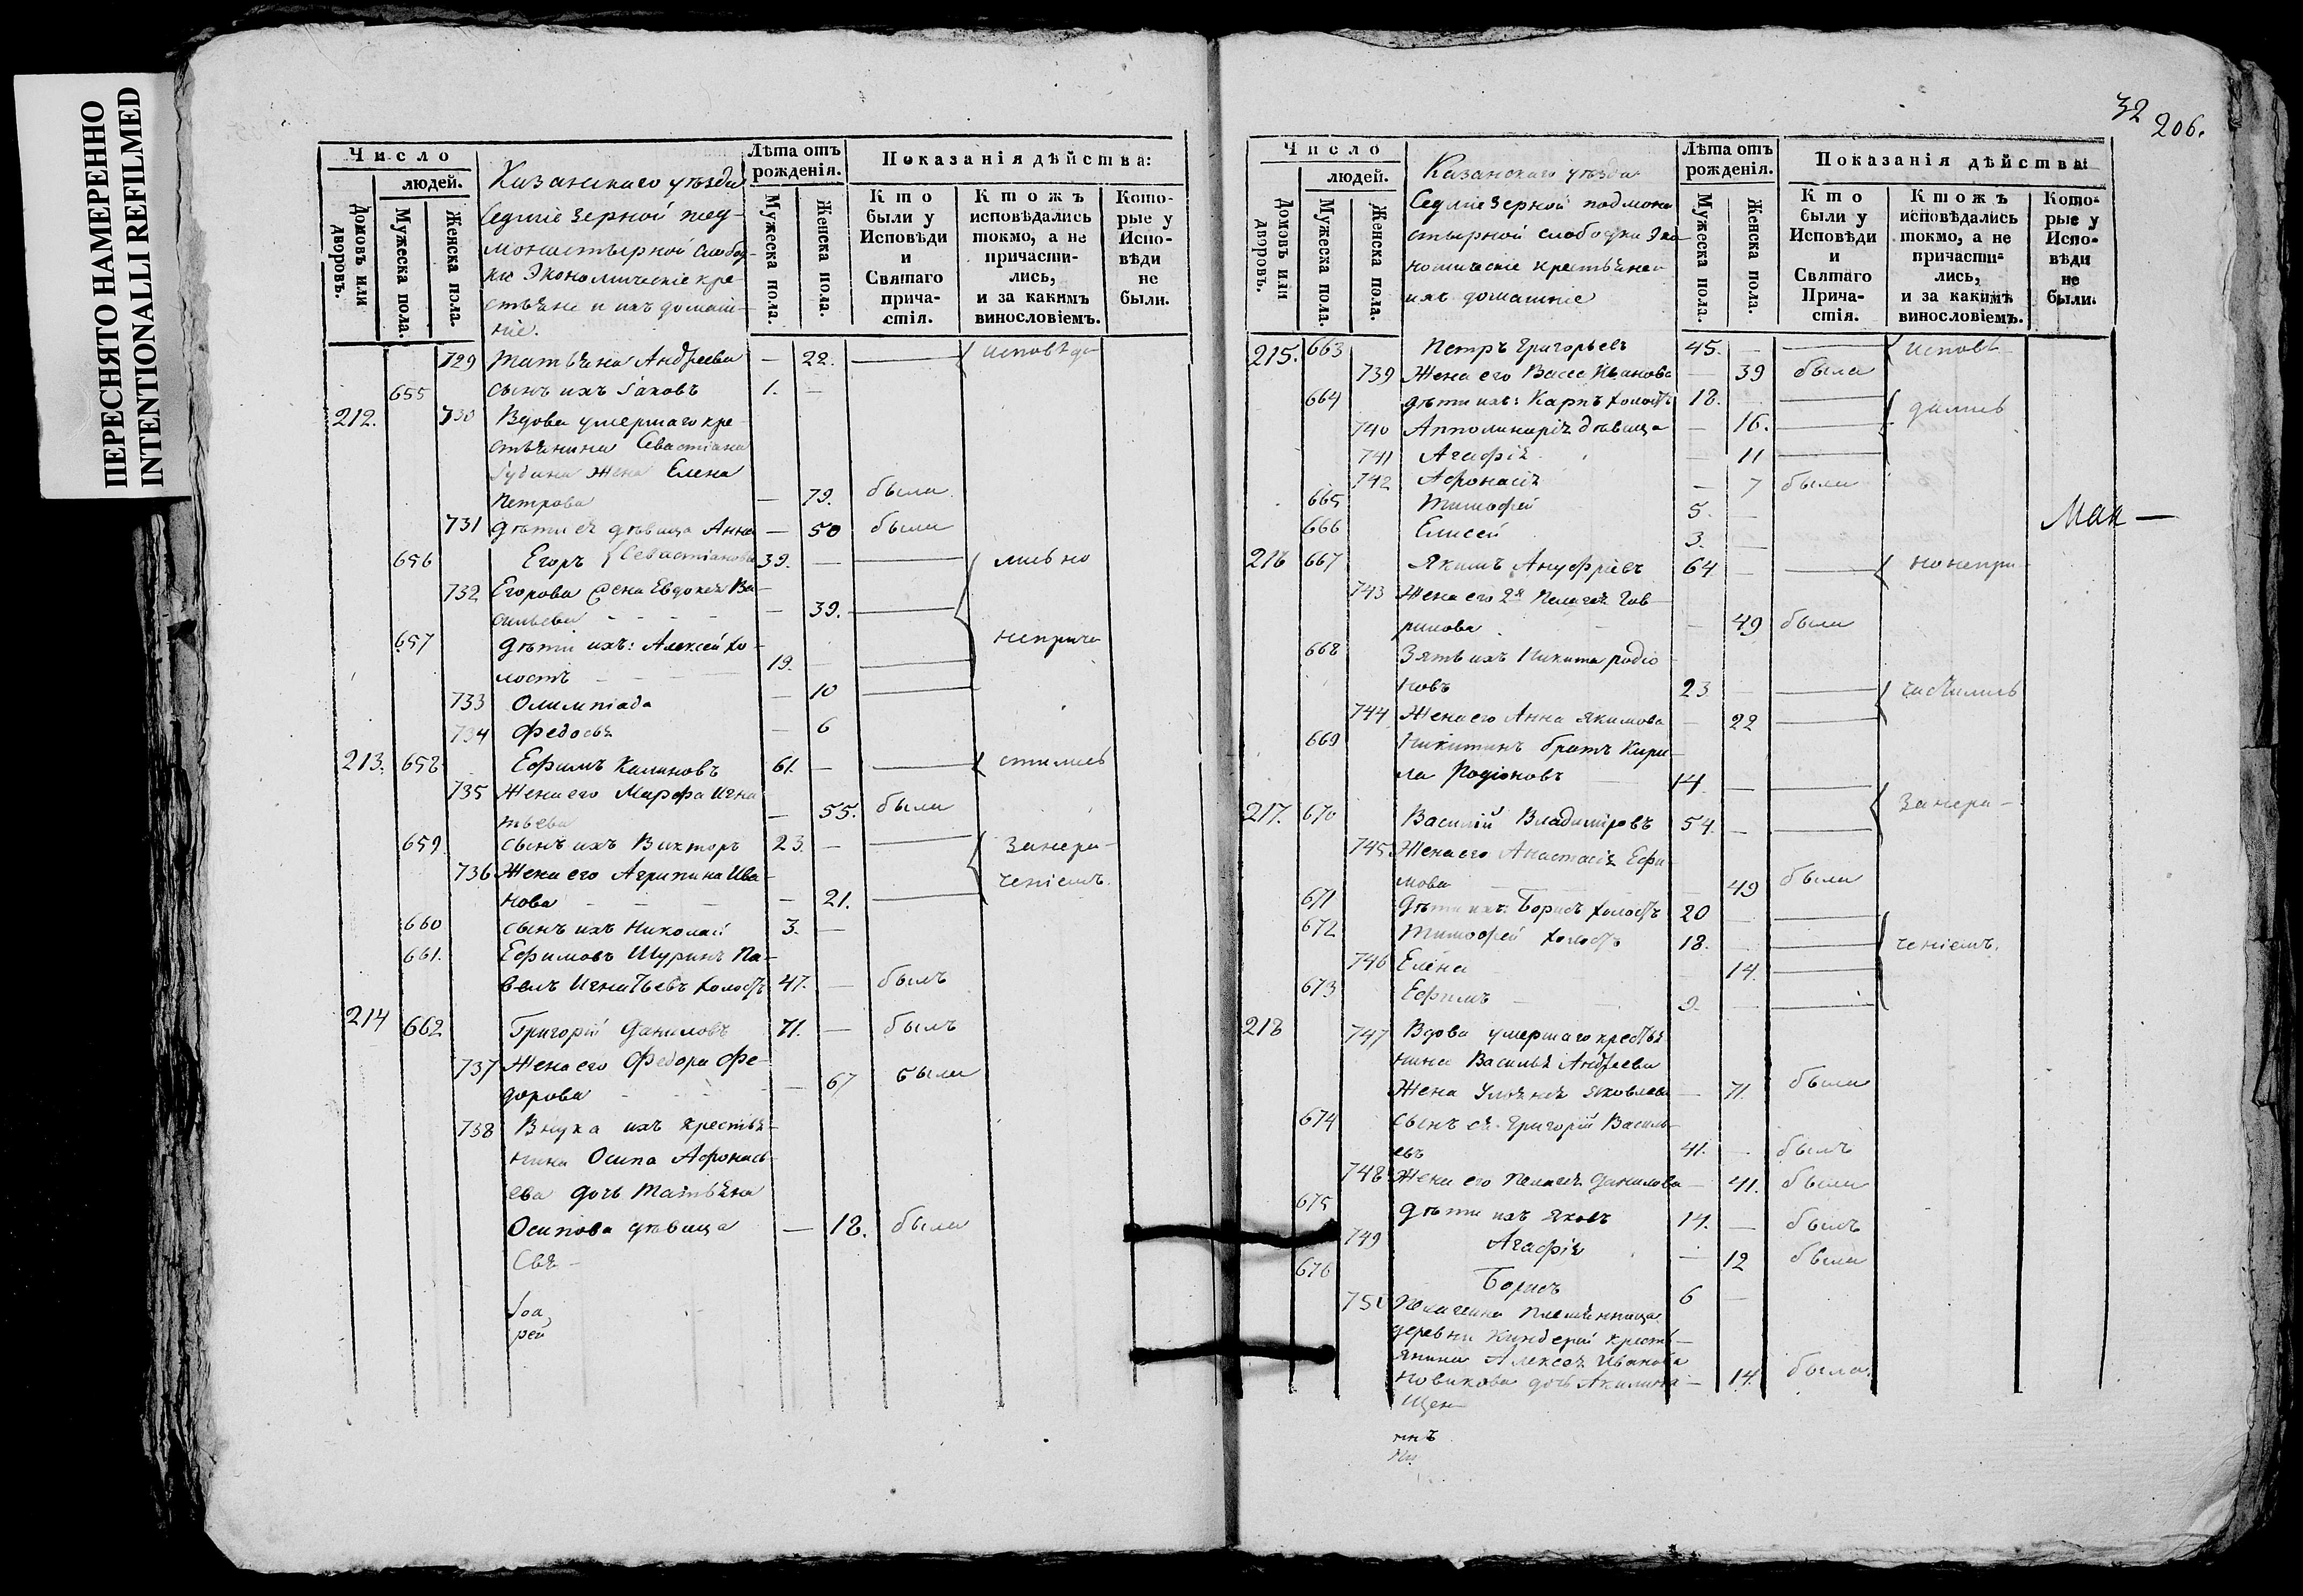 ПЕРЕСНЯТО НАМЕРЕННО
INTENTIONALLI REFILMED
Число
людей.
Домовъ или дворовъ.
Мужеска пола.
Женска пола.
Казанскаго уѣзда
Седміезерной под-
монастырной слобод-
ки Экономическіе кре-
стьяне и ихъ домаш-
ніе.
Лѣта отъ рожденія.
Мужеска пола.
Женска пола.
Показанія дѣйства:
Кто были у Исповѣди и Святаго прича-стія.
Ктожъ исповѣдались токмо, а не причасти-лись, и за какимъ винословіемъ.
Кото-рые у Испо-вѣди не были.
729 Татьяна Андреева — 22. — исповѣда
655 сынъ ихъ Іаковъ 1. —
212. 730 Вдова умершаго кре-
стьянина Севастіана
жена Елена
Петрова — 79. была
731 дѣти ея дѣвица Анна — 50 была
656 Егоръ Севастіановы 39. — — лись но
732 Егорова жена Евдокея Ва-
сильева — 39. —
657 дѣти ихъ: Алексей хо- неприча
лостъ 19. — —
733 Олимпіада — 10 —
734 Федосья — 6
213. 658 Ефимъ Калиновъ 61. — — стились
735 Жена его Марфа Игна
тьева — 55. была
659 сынъ ихъ Викторъ 23. — — занера-
736 Жена его Агрипина Ива- ченіемъ.
нова — 21. —
660 сынъ ихъ Николай 3. —
661. Ефимовъ Шуринъ Па-
велъ Игнатьевъ холостъ 47. — былъ
214 662 Григорій Даниловъ 71. — былъ
737 Жена его Федора Фе-
дорова — 67 была
738 Внука ихъ крестья-
нина Осипа Афонась-
ева дочь Татьяна
Осипова дѣвица — 18. была
Свя-
Іоа,
рей
32
206.
Число
людей.
Домовъ или дворовъ.
Мужеска пола.
Женска пола.
Казанскаго уѣзда
Седміезерной подмона
стырной слободки Эко
номическіе крестьяне и
ихъ домашніе
Лѣта отъ рожденія.
Мужеска пола.
Женска пола.
Показанія дѣйства
Кто были у Исповѣди и Святаго Прича-стія.
Ктожъ исповѣдались токмо, а не причасти-лись, и за какимъ винословіемъ.
Кото-рые у Испо-вѣди не были.
215. 663 Петръ Григорьевъ 45. — — исповѣ
739 Жена его Васса Иванова — 39 была
664 дѣти ихъ: Карпъ холостъ 18. — дались
740 Апполинарія дѣвица — 16. —
741 Агафія — 11 —
742 Афонасія — 7 была
665 Тимофей 5. —
Мак —
666 Елисей 3. —
216 667 Якимъ Ануфріевъ 64 — — но непри
743 Жена его 2я Пелагея Гав-
рилова — 49 была
668 Зять ихъ Никита Родіо
новъ 23 — — частились
744 Жена его Анна Якимова — 22 —
669 Никитинъ братъ Кири-
ла Родіоновъ 14. — —
занера-
217. 670 Василій Владиміровъ 54. — —
745 Жена его Анастасія Ефи-
мова — 49 была
671 Дѣти ихъ: Борисъ холостъ 20 — —
672 Тимофей холостъ 18. — — ченіемъ.
746 Елена — 14. —
673 Ефимъ 9. — —
218 747 Вдова умершаго крестья
нина Василья Андреева
Жена Ульяна Яковлева — 71. была
674 сынъ ея Григорій Василь-
евъ 41. — былъ
748 Жена его Пелагея Данилова — 41. была
675 Дѣти ихъ Яковъ 14. — былъ
749 Агафія — 12 была
676 Борисъ 6 —
750 Пелагеина племянница
деревни Киндерей кресть-
янина Алексея Иванова
Новикова дочь Акилина — 14. была.
Щен-
инъ